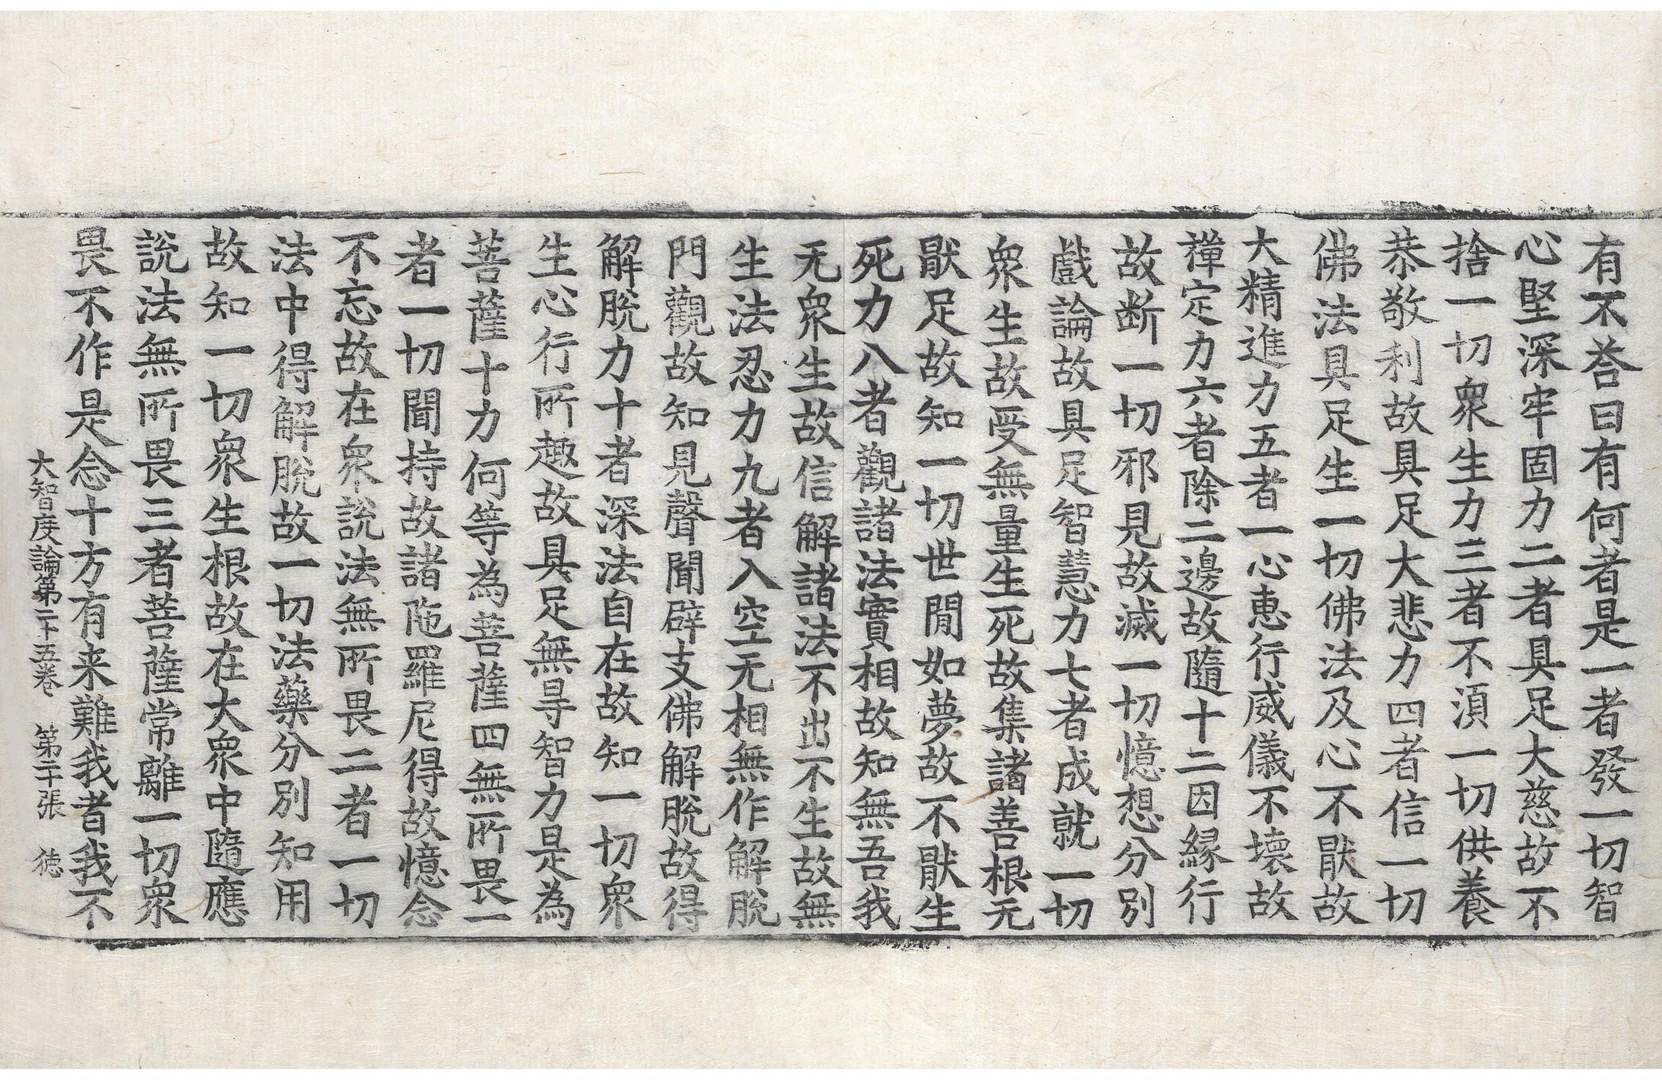 有不荅曰有何者是一者發一切智
心堅深牢固力二者具足大慈故不
捨一切衆生力三者不湏一切供養
恭敬利故具足大悲力四者信一切
佛法具足生一切佛法及心不猒故
大精進力五者一心惠行威儀不壞故
禪定力六者除二邊故隨十二因縁行
故断一切邪見故滅一切憶想分別
戲論故具足智慧力七者成就一切
衆生故受無量生死故集諸善根无
猒足故知一切世間如夢故不猒生
死力八者觀諸法實相故知無吾我
无衆生故信解諸法不出不生故無
生法忍力九者入空无相無作解脫
門觀故知見聲聞辟支佛解脫故得
解脫力十者深法自在故知一切衆
生心行所趣故具足無㝵智力是為
菩薩十力何等為菩薩四無所畏一
者一切聞持故諸陁羅尼得故憶念
不忘故在衆說法無所畏二者一切
法中得解脫故一切法藥分別知用
故知一切衆生根故在大衆中隨應
說法無所畏三者菩薩常離一切衆
畏不作是念十方有来難我者我不
大智度論第二十五卷 第二十張 徳